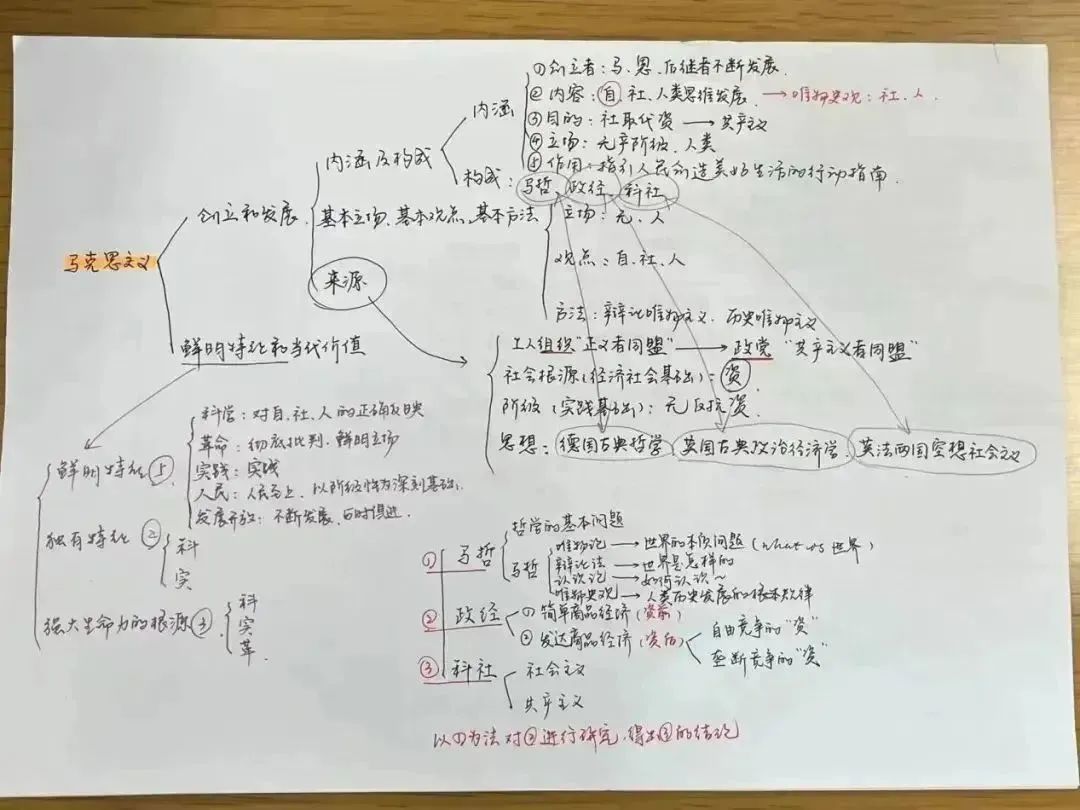 马克思主义
创立和发展
内涵及构成
内涵
①创立者：马、恩，后继者不断发展．
②内容：自、社、人类思维发展．→唯物史观：社、人．
③目的：社取代资→共产主义
④立场：无产阶级、人类
⑤作用：指引人民创造美好生活的行动指南．
构成：马哲 政经、科社
基本立场、基本观点、基本方法
立场：无、人
观点：自、社、人
方法：辩证唯物主义、历史唯物主义
来源
工人组织“正义者同盟”→政党“共产主义者同盟”
社会根源（经济社会基础）：资．
阶级（实践基础）：无反抗资．
思想：德国古典哲学、英国古典政治经济学、英法两国空想社会主义
鲜明特征和当代价值
鲜明特征⑤
科学：对自、社、人的正确反映
革命：彻底批判．鲜明立场
实践：实践
人民：人民至上，以阶级性为深刻基础．
发展开放：不断发展、与时俱进．
独有特征②
科
实
强大生命力的根源③
科
实
革．
①马哲
哲学的基本问题
马哲
唯物论→世界的本质问题（what is 世界）
辩证法→世界是怎样的
认识论→如何认识～
唯物史观→人类历史发展的根本规律
②政经
①简单商品经济（资前）
②发达商品经济（资后）
自由竞争的“资”
垄断竞争的“资”
③科社
社会主义
共产主义
以①为法对②进行研究，得出③的结论